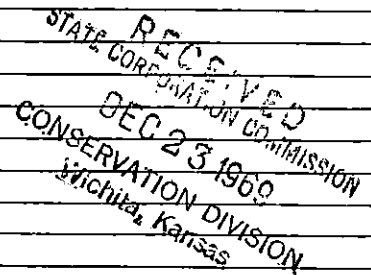 RECEIVED
STATE CORPORATION COMMISSION
DEC 23 1969
CONSERVATION DIVISION
Wichita, Kansas